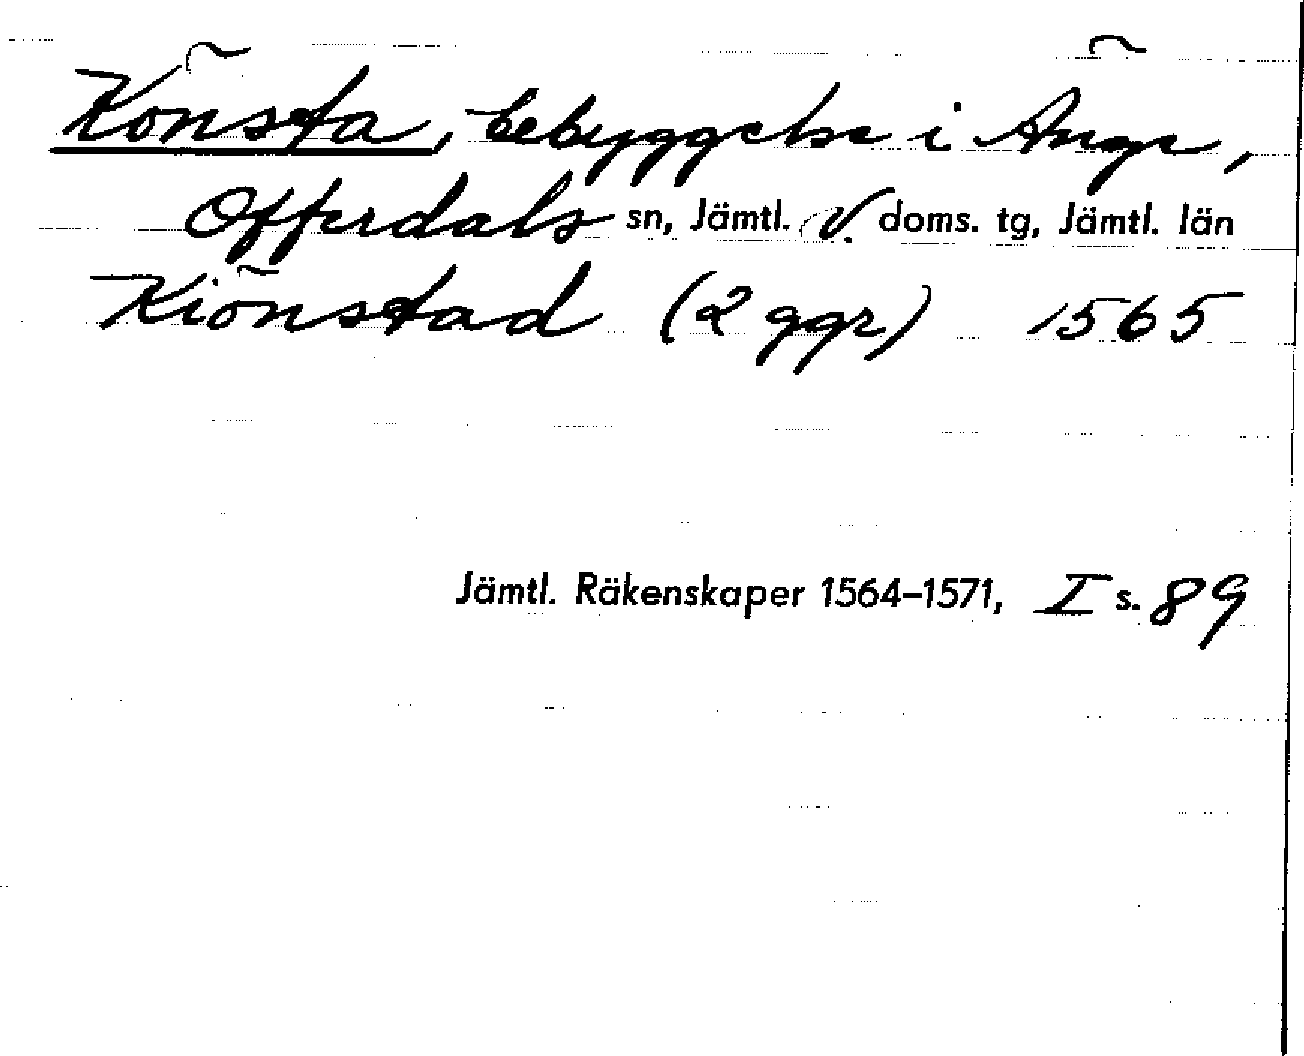 Könsta, bebyggelse i Änge,
Offerdals sn, Jämtl. V. doms. tg, Jämtl. län
Kiönstad (2 ggr) 1565
Jämtl. Räkenskaper 1564–1571, I s. 89